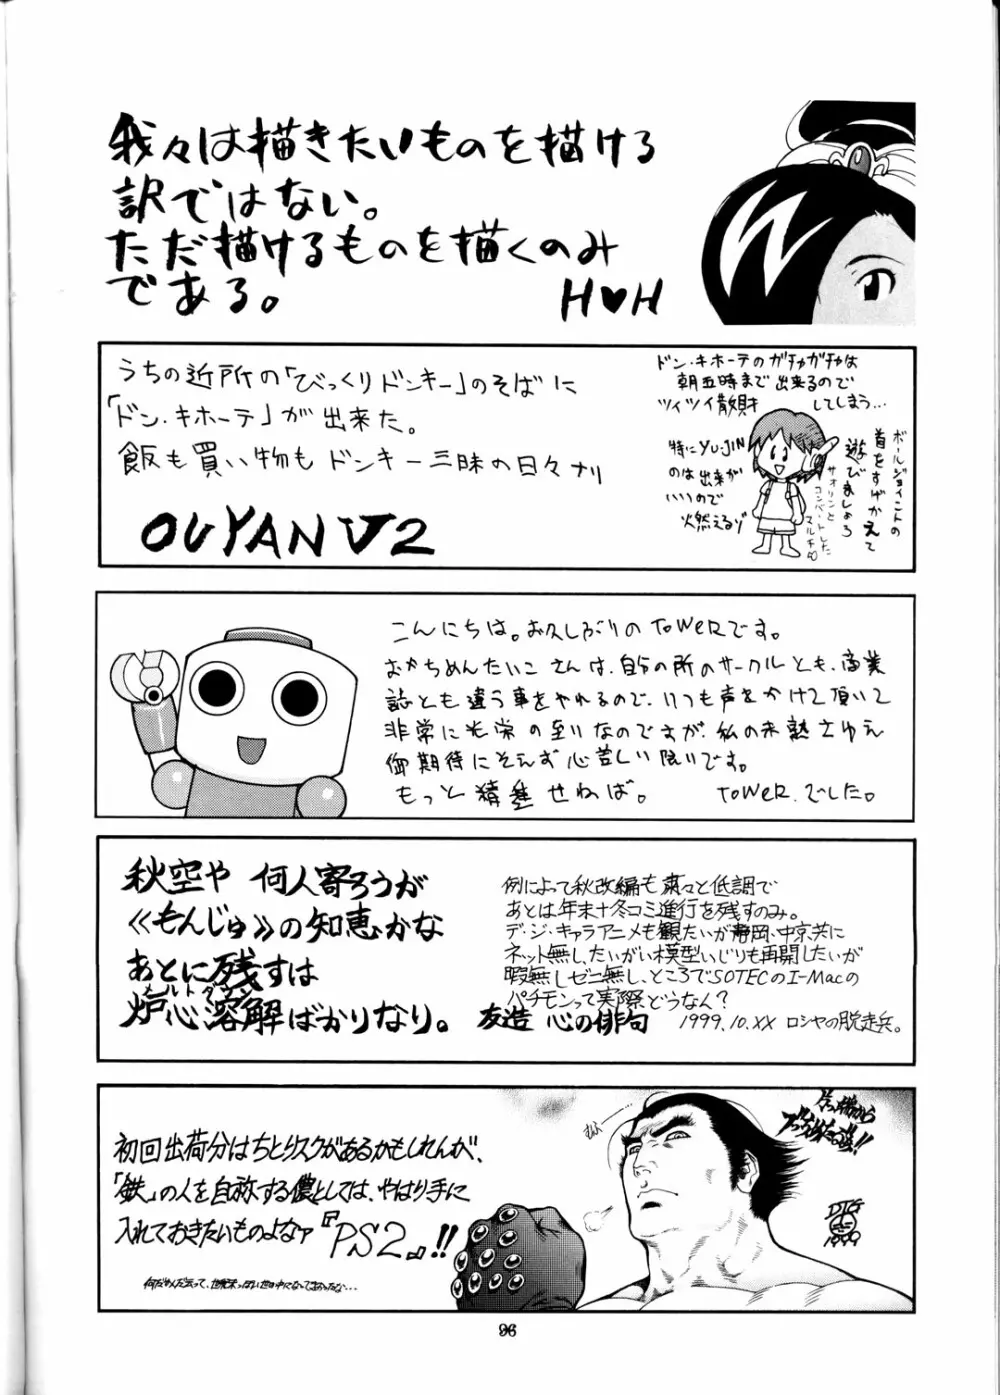 我々は描きたいものを描ける
訳ではない。
ただ描けるものを描くのみ
である。
H♥H
うちの近所の「びっくりドンキー」のそばに
「ドン・キホーテ」が出来た。
飯も買い物もドンキー三昧の日々ナリ
OUYANV2
ドン・キホーテのガチャガチャは
朝五時まで出来るので
ツイツイ散財してしまう…
特にYUJIN
のは出来が
いいので
火燃えるゾ
ボールジョイントの
首をすげかえて
遊びましょう
サオリンと
コンバートした
マルチ
こんにちは。お久しぶりのToWeRです。
おかちめんたいこさんは、自分の所のサークルとも、商業
誌とも違う事をやれるので、いつも声をかけて頂いて
非常に光栄の至りなのですが、私の未熟さゆえ
御期待にそえず心苦しい限りです。
もっと精進せねば。
ToWeR.でした。
秋空や 何人寄ろうが
≪もんじゅ≫の知恵かな
あとに残すは
メルトダウン
炉心溶解ばかりなり。
友造 心の俳句
例によって秋改編も粛々と低調で
あとは年末+冬コミ進行を残すのみ。
デ・ジ・キャラアニメも観たいが静岡、中京共に
ネット無し、たいがい模型いじりも再開したいが
暇無しゼニ無し、ところでSOTECのI-Macの
パチモンって実際どうなん?
1999.10.XX ロシヤの脱走兵。
初回出荷分はちとリスクがあるかもしれんが、
「鉄」の人を自称する儂としては、やはり手に
入れておきたいものよなァ『PS2』!!
DTG
1999
96